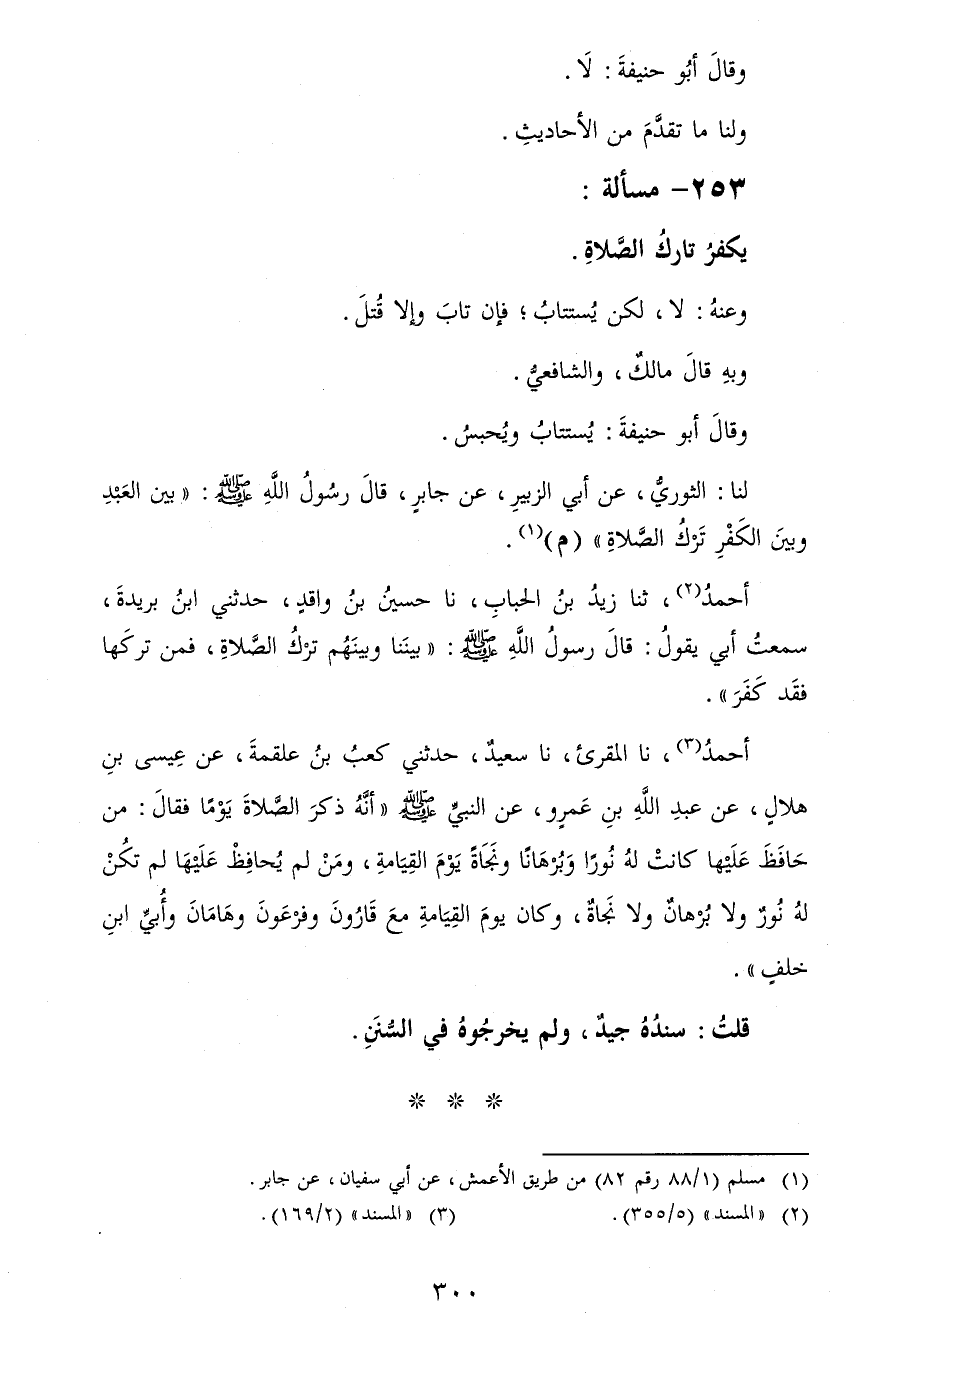 وقالَ أبُو حنيفةَ : لَا .
ولنا ما تقدَّمَ من الأحاديثِ .
٢٥٣- مسألة :
يكفرُ تاركُ الصَّلاةِ .
وعنهُ : لا ، لكن يُستتابُ ؛ فإن تابَ وإلا قُتلَ .
وبهِ قالَ مالكٌ ، والشافعيُّ .
وقالَ أبو حنيفةَ : يُستتابُ ويُحبسُ .
لنا : الثوريُّ ، عن أبي الزبيرِ ، عن جابرٍ ، قالَ رسُولُ اللَّهِ ﷺ : « بين العَبْدِ
وبينَ الكَفْرِ تَرْكُ الصَّلاةِ » ( م )(١) .
أحمدُ(٢) ، ثنا زيدُ بنُ الحبابِ ، نا حسينُ بنُ واقدٍ ، حدثني ابنُ بريدةَ ،
سمعتُ أبي يقولُ : قالَ رسولُ اللَّهِ ﷺ : « بينَنا وبينَهُم ترْكُ الصَّلاةِ ، فمن تركَها
فقَد كَفَرَ » .
أحمدُ(٣) ، نا المقرئ ، نا سعيدٌ ، حدثني كعبُ بنُ علقمةَ ، عن عِيسى بنِ
هلالٍ ، عن عبدِ اللَّهِ بنِ عَمرٍو ، عن النبيِّ ﷺ « أنَّهُ ذكرَ الصَّلاةَ يَوْمًا فقالَ : من
حَافَظَ عَلَيْها كانتْ لهُ نُورًا وَبُرْهَانًا ونَجَاةً يَوْمَ القِيَامةِ ، ومَنْ لم يُحافِظْ عَلَيْهَا لم تكُنْ
لهُ نُورٌ ولا بُرْهانٌ ولا نَجاةٌ ، وكان يومَ القِيَامةِ معَ قَارُونَ وفرْعَونَ وهَامَانَ وأُبيِّ ابنِ
خلفٍ » .
قلتُ : سندُهُ جيدٌ ، ولم يخرجُوهُ في السُّنَنِ .
* * *
(١) مسلم (٨٨/١ رقم ٨٢) من طريق الأعمش ، عن أبي سفيان ، عن جابر .
(٢) « المسند » (٣٥٥/٥) . (٣) « المسند » (١٦٩/٢) .
٣٠٠